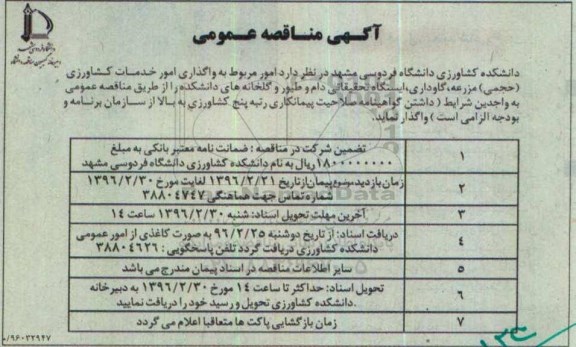 آگهی مناقصه عمومی
دانشکده کشاورزی دانشگاه فردوسی مشهد در نظر دارد امور مربوط به واگذاری امور خدمات کشاورزی
(حجمی) مزرعه، گاوداری، ایستگاه تحقیقاتی دام و طیور و گلخانه های دانشکده را از طریق مناقصه عمومی
به واجدین شرایط ( داشتن گواهینامه صلاحیت پیمانکاری رتبه پنج کشاورزی به بالا از سازمان برنامه و
بودجه الزامی است ) واگذار نماید.
۱ تضمین شرکت در مناقصه : ضمانت نامه معتبر بانکی به مبلغ
۱۸۰۰۰۰۰۰۰۰ ریال به نام دانشکده کشاورزی دانشگاه فردوسی مشهد
۲ زمان بازدید موضوع پیمان از تاریخ ۱۳۹۶/۲/۲۱ لغایت مورخ ۱۳۹۶/۲/۳۰
شماره تماس جهت هماهنگی ۳۸۸۰۴۷۴۷
۳ آخرین مهلت تحویل اسناد: شنبه ۱۳۹۶/۲/۳۰ ساعت ۱۴
۴ دریافت اسناد: از تاریخ دوشنبه ۹۶/۲/۲۵ به صورت کاغذی از امور عمومی
دانشکده کشاورزی دریافت گردد تلفن پاسخگویی : ۳۸۸۰۴۶۲۶
۵ سایر اطلاعات مناقصه در اسناد پیمان مندرج می باشد
۶ تحویل اسناد: حداکثر تا ساعت ۱۴ مورخ ۱۳۹۶/۲/۳۰ به دبیرخانه
دانشکده کشاورزی تحویل و رسید خود را دریافت نمایید.
۷ زمان بازگشایی پاکت ها متعاقبا اعلام می گردد
/۹۶۰۲۲۹۴۷